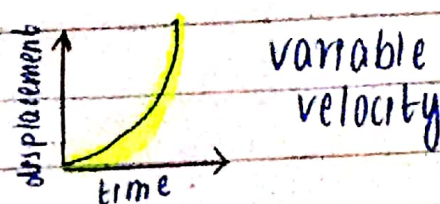 displacement
time
variable
velocity